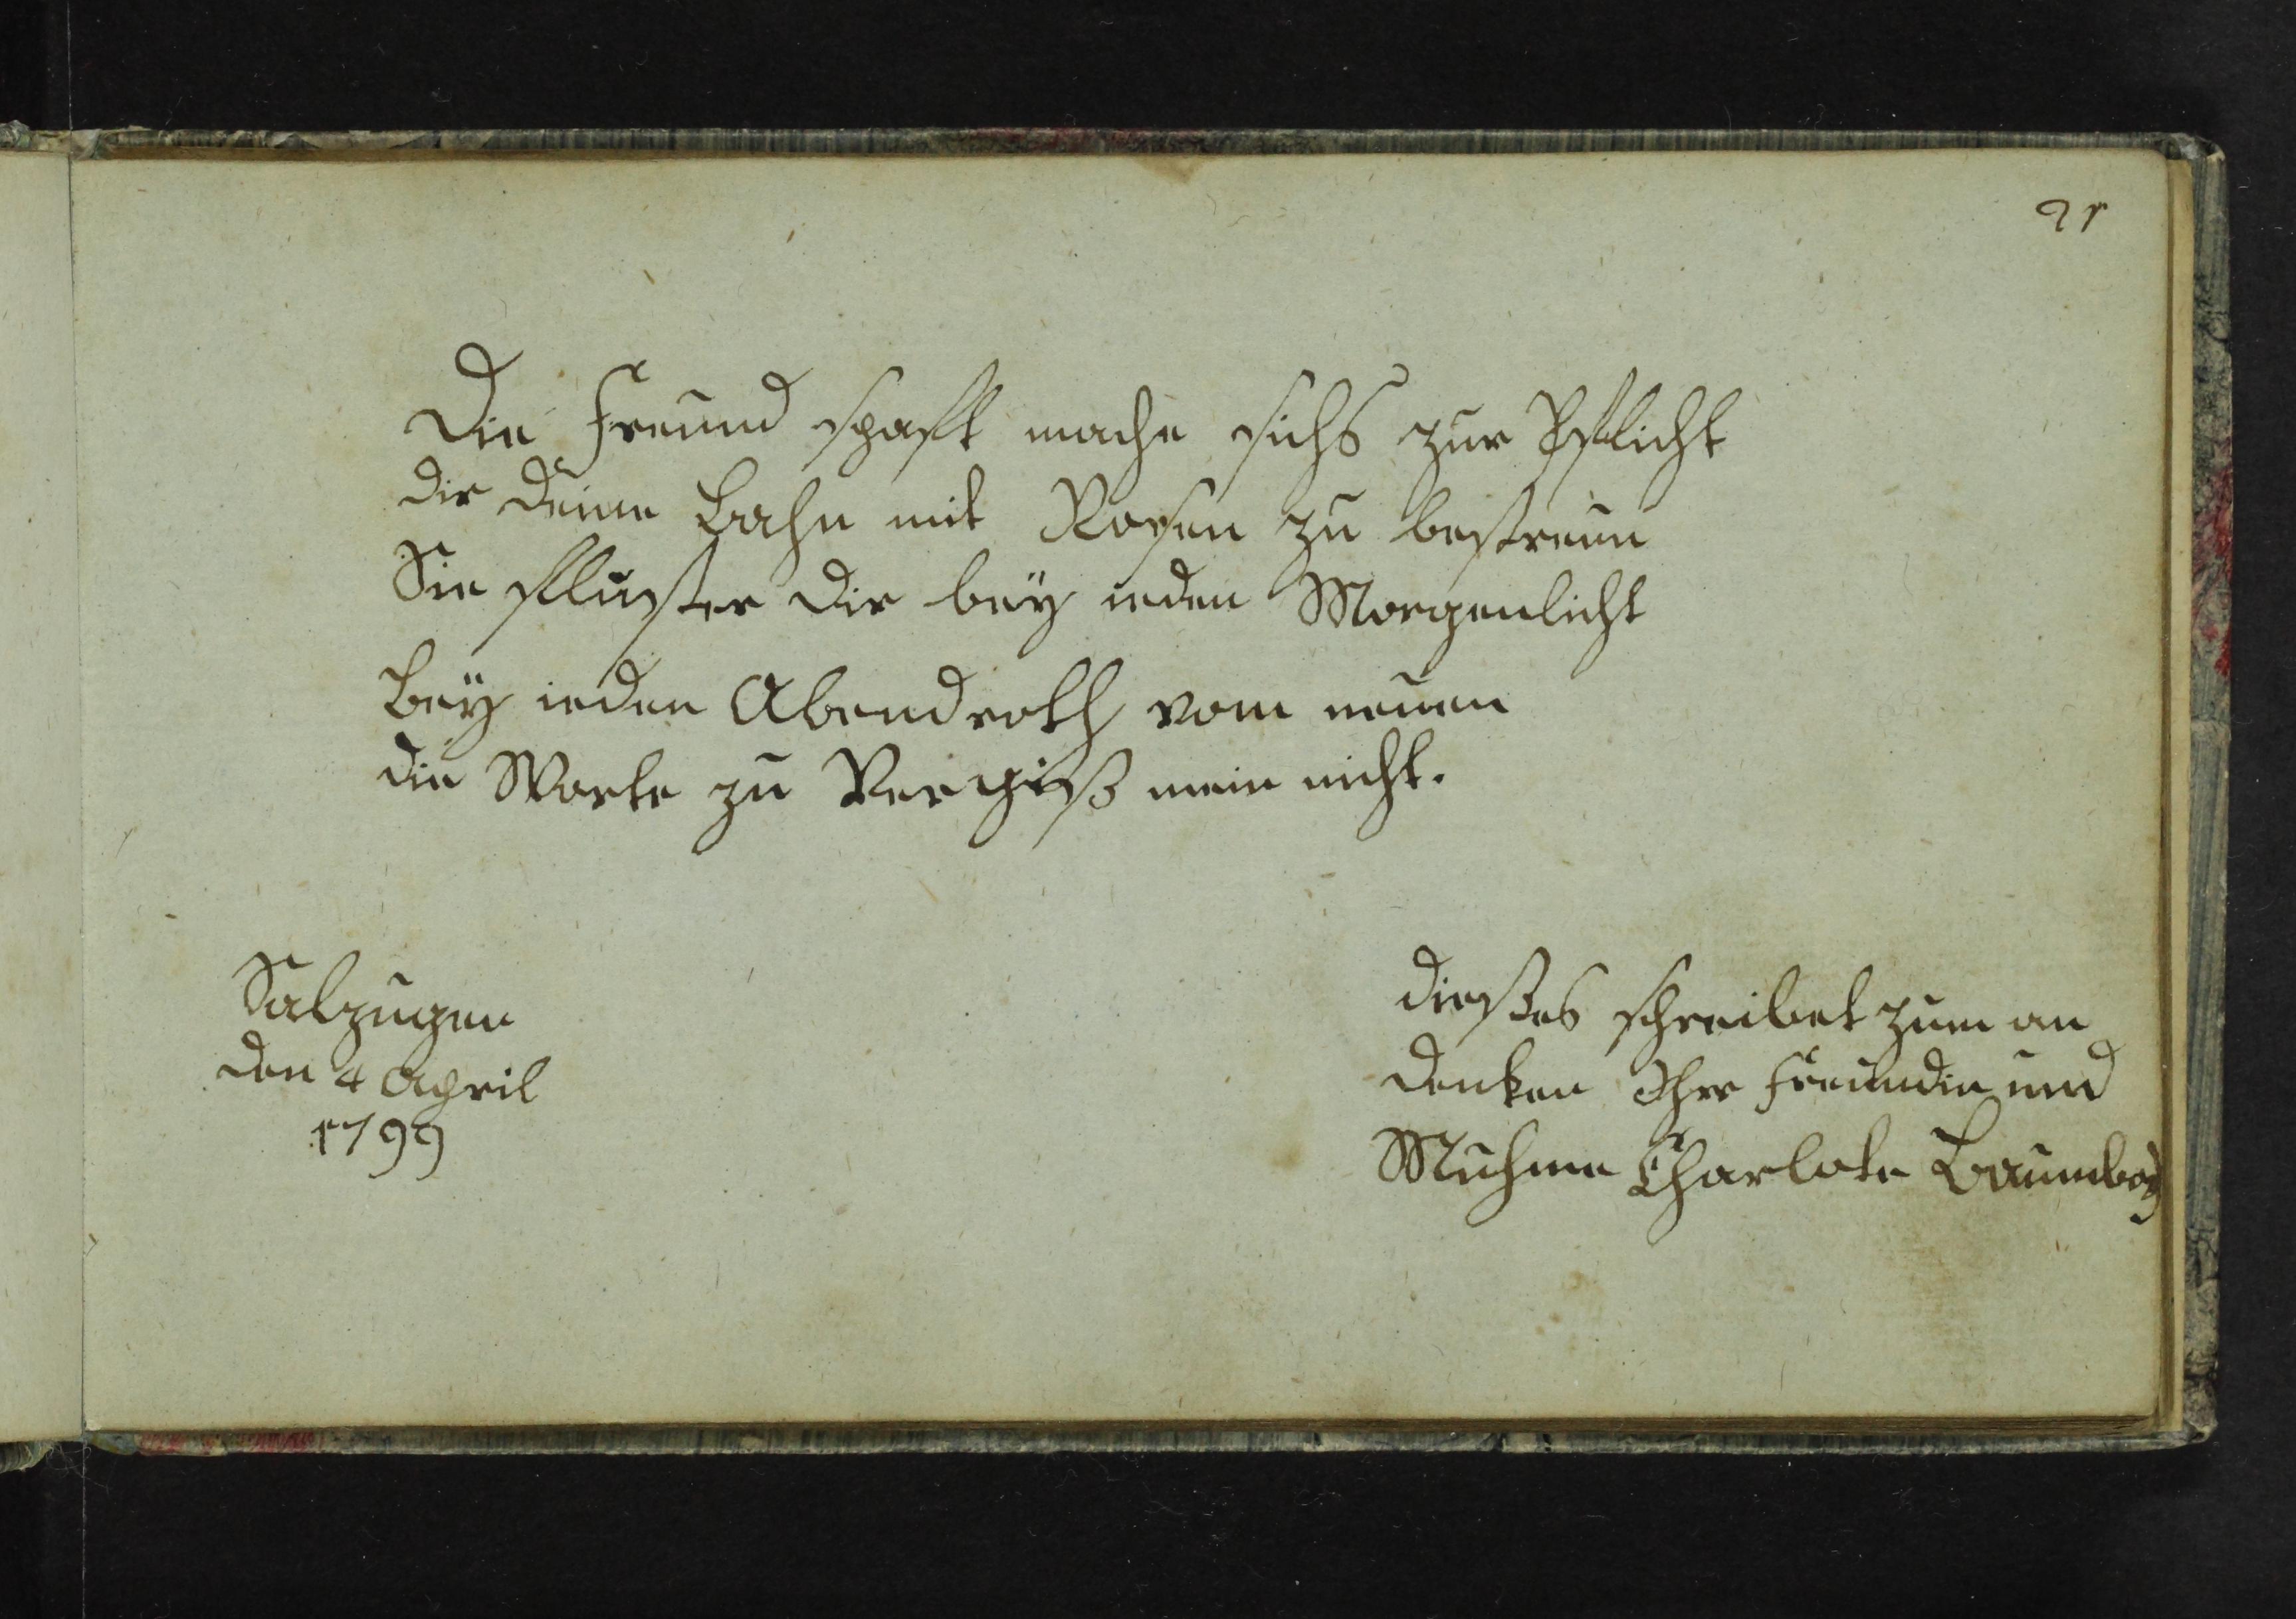 91
Die Freund schaft mache sichs zur Pflicht
dir deine Bahn mit Rosen zu bestreun
Sie fluster dir beÿ ieden Morgenlicht
Beÿ ieden Abendroth vom neuen
die Worte zu Vergiß mein nicht.
Salzungen
den 4 April
1799
dießes schreibet zum an
denken Ihre Freundin und
Muhme Charlote Baumbach